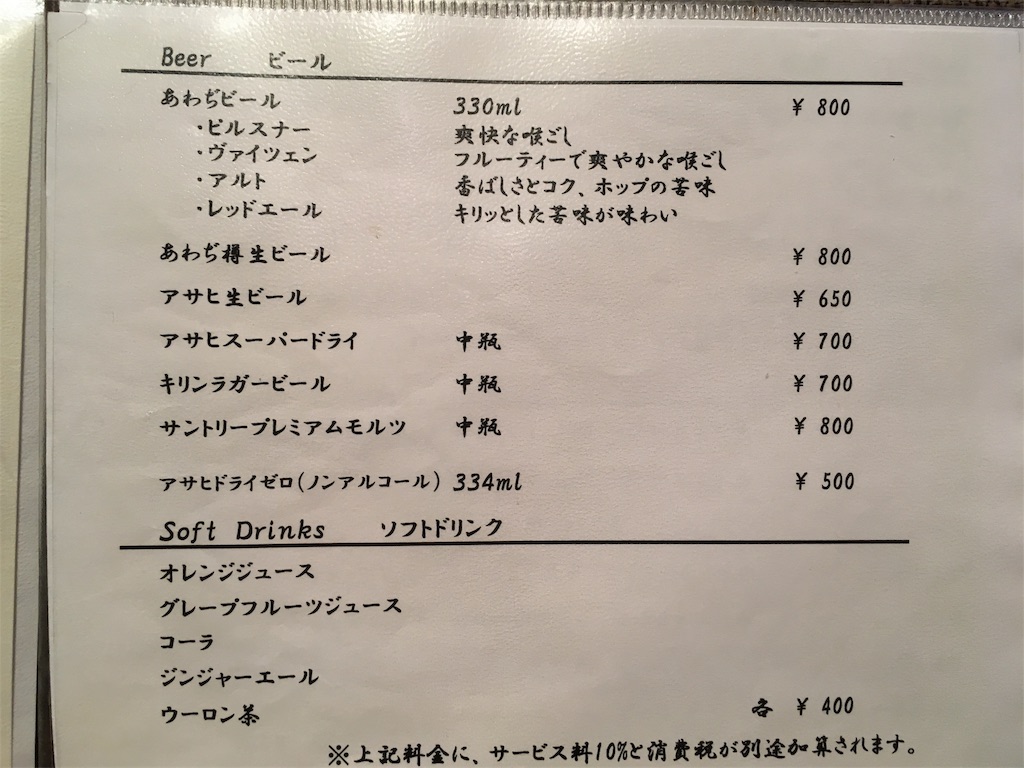 Beer ビール
あわぢビール 330ml ¥ 800
・ピルスナー 爽快な喉ごし
・ヴァイツェン フルーティーで爽やかな喉ごし
・アルト 香ばしさとコク、ホップの苦味
・レッドエール キリッとした苦味が味わい
あわぢ樽生ビール ¥ 800
アサヒ生ビール ¥ 650
アサヒスーパードライ 中瓶 ¥ 700
キリンラガービール 中瓶 ¥ 700
サントリープレミアムモルツ 中瓶 ¥ 800
アサヒドライゼロ(ノンアルコール) 334ml ¥ 500
Soft Drinks ソフトドリンク
オレンジジュース
グレープフルーツジュース
コーラ
ジンジャーエール
ウーロン茶 各 ¥ 400
※上記料金に、サービス料10%と消費税が別途加算されます。